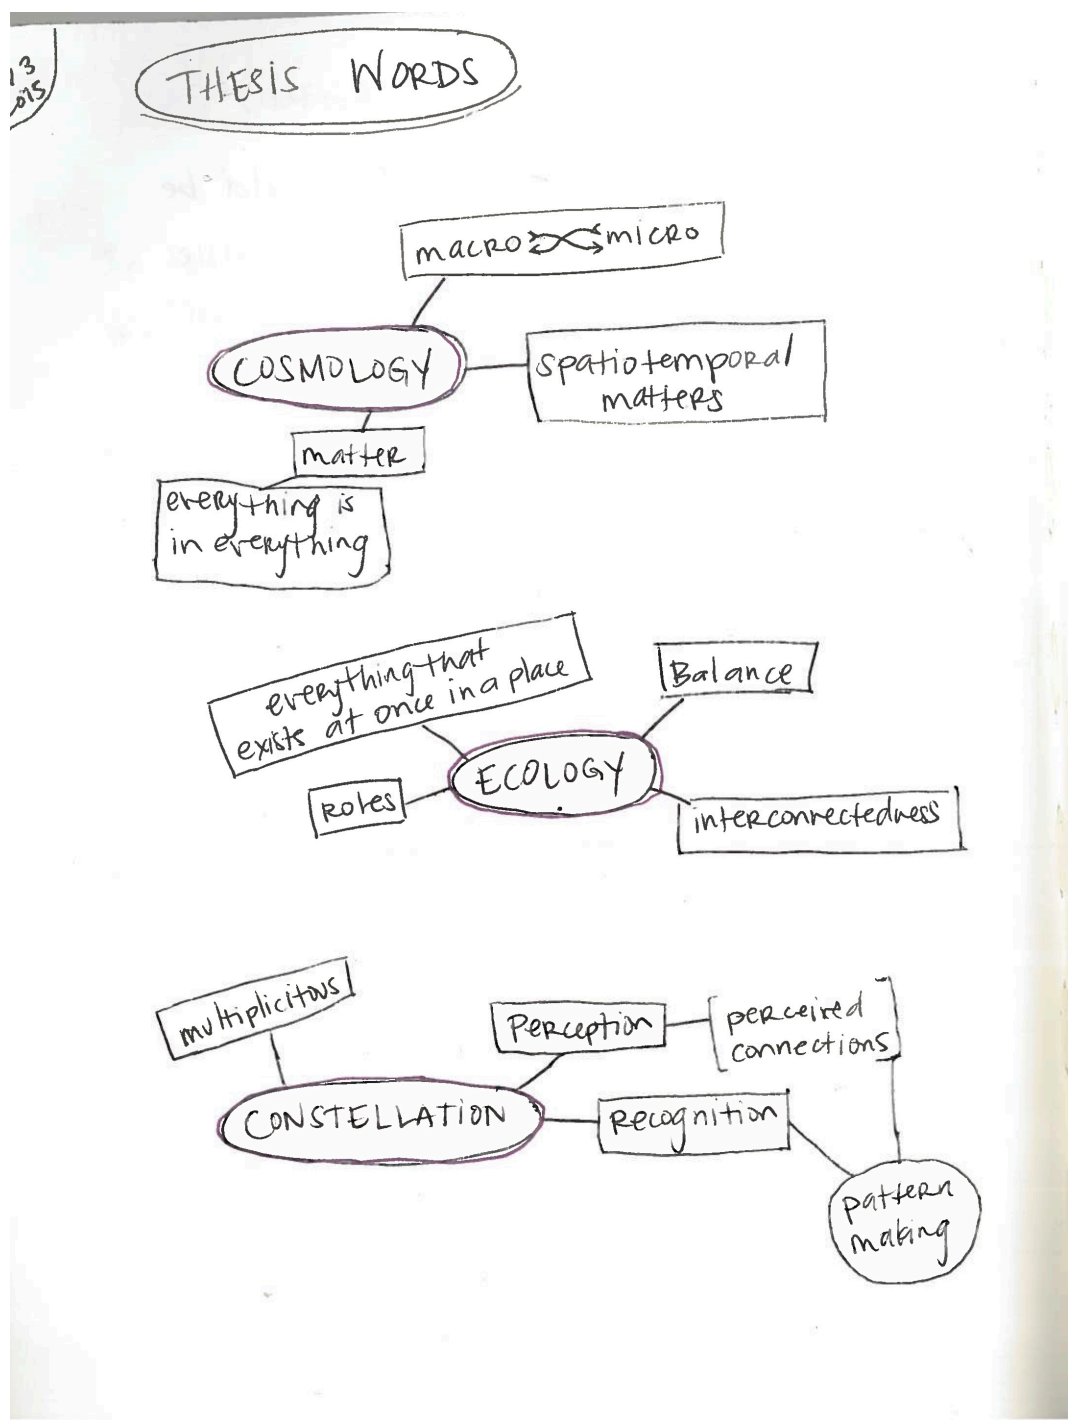 13
2015
THESIS WORDS
macro micro
COSMOLOGY
spatiotemporal
matters
matter
everything is
in everything
everything that
exists at once in a place
Balance
ECOLOGY
Roles
interconnectedness
multiplicitous
Perception
perceived
connections
CONSTELLATION
Recognition
pattern
making